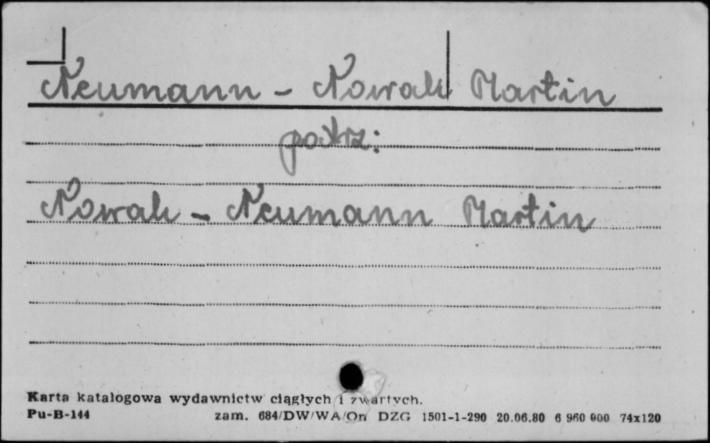 Neumann - Nowak Martin
patrz:
Nowak - Neumann Martin
Karta katalogowa wydawnictw ciągłych i zwartych.
Pu-B-144 zam. 684/DW/WA/On DZG 1501-1-290 20.06.80 6 960 000 74x120